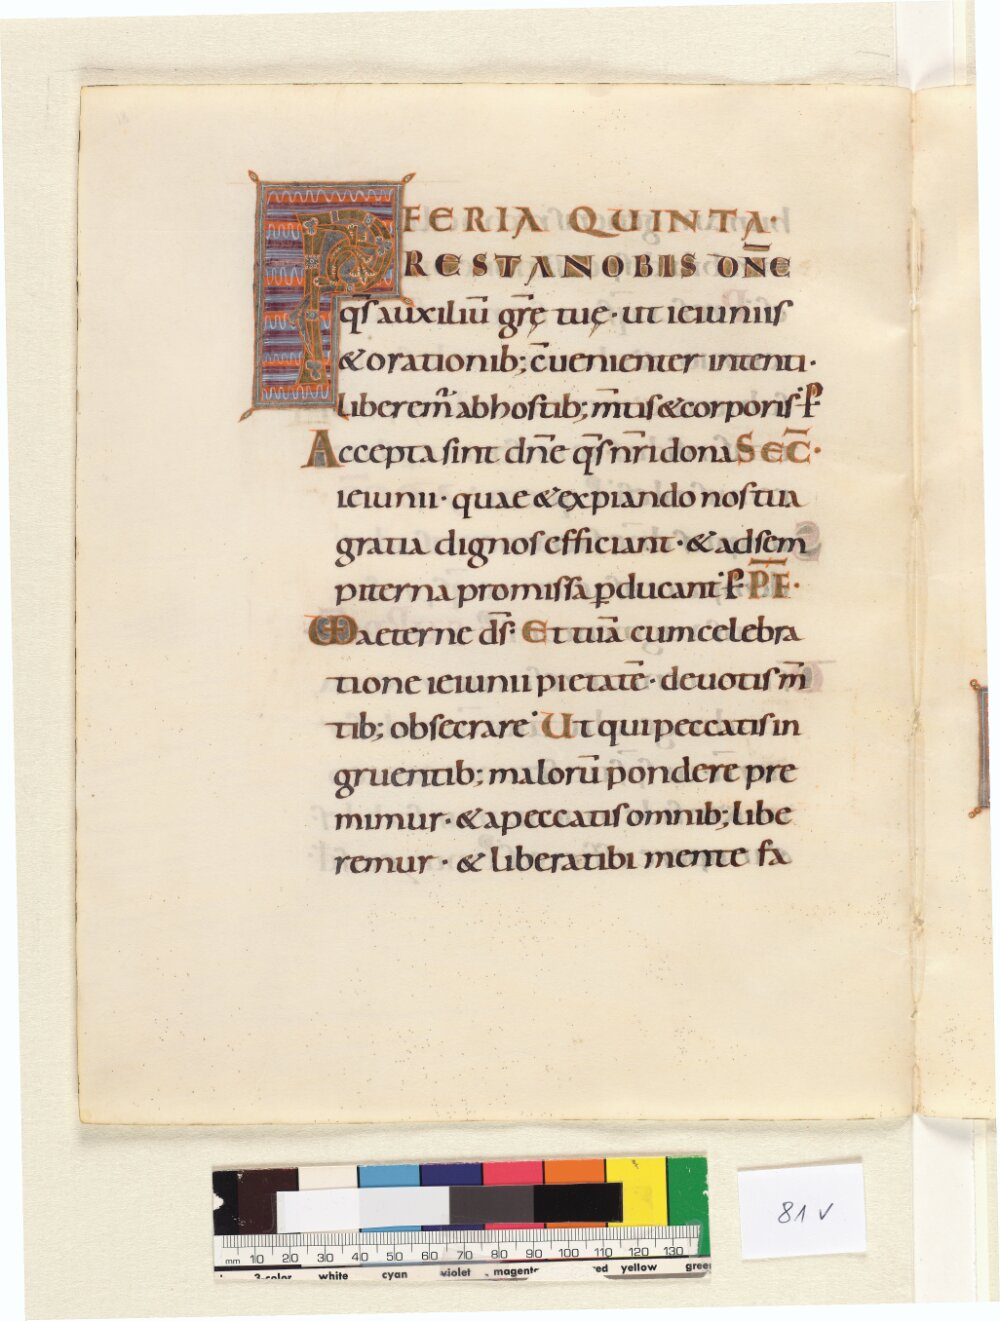 FERIA QUINTA·
PRESTA NOBIS DN̄E
q̄s auxiliū gr̄ę tuę· ut ieiuniis
& orationib; c̄uenienter intenti·
liberem̃ ab hostib; m̄tis & corporis· ꝑ
Accepta sint dn̄e q̄s nr̄i dona SEC̄·
ieiunii· quae & expiando nos tua
gratia dignos efficiant· & ad sem
piterna promissa ꝑducant· ꝑ P̄F̄·
VD aeterne d̄s· Et tuā cum celebra
tione ieiunii pietatē· deuotis m̄
tib; obsecrare· Ut qui peccatis in
gruentib; malorū pondere pre
mimur· & a peccatis omnib; libe
remur· & libera tibi mente fa
81 v
mm 10 20 30 40 50 60 70 80 90 100 110 120 130
3-color white cyan violet magenta red yellow green